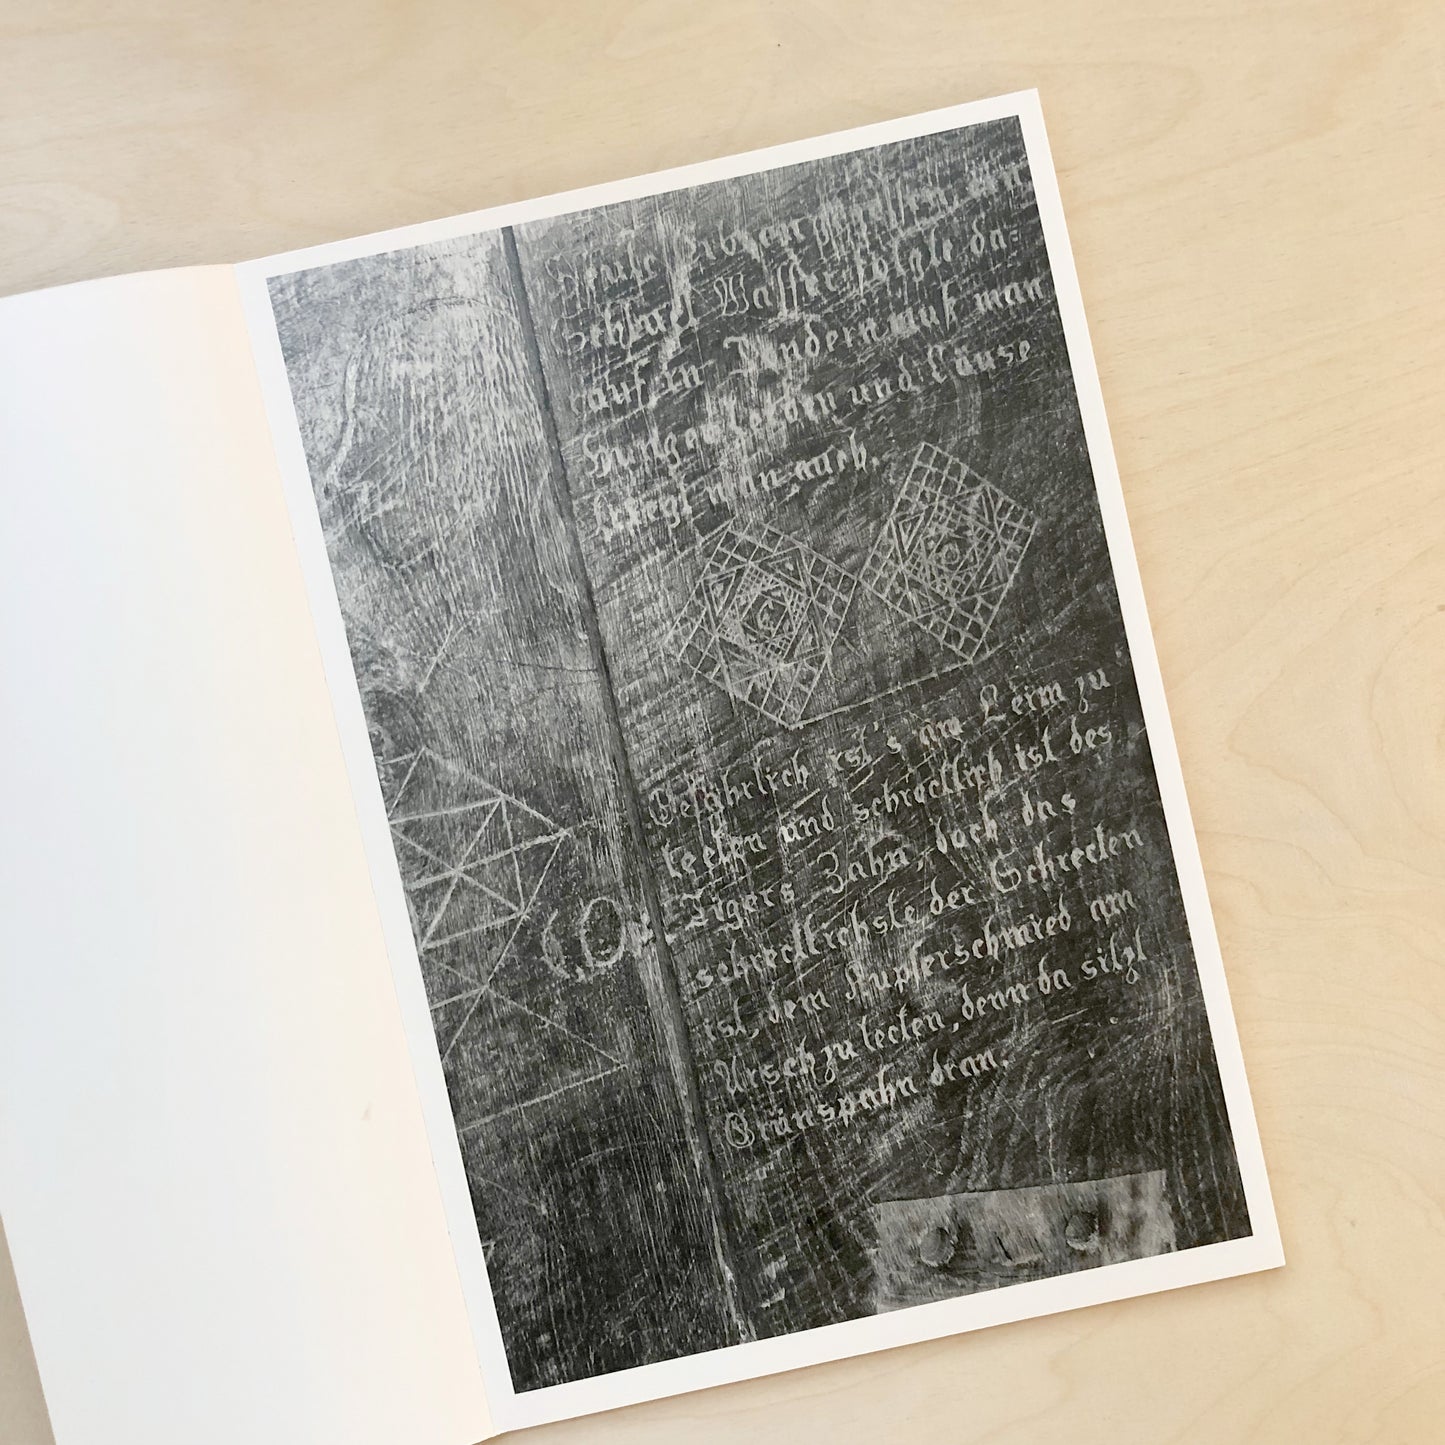 ein
Wasser folgte da=
auf in muß man
Hunger leiden und Läuse
kriegt man auch.
Gefährlich ist's am Leim zu
lecken und schrecklich ist des
Tigers Zahn, doch das
schrecklichste der Schrecken
ist, dem Kupferschmied am
Arsch zu lecken, denn da sitzt
Grünspahn dran.